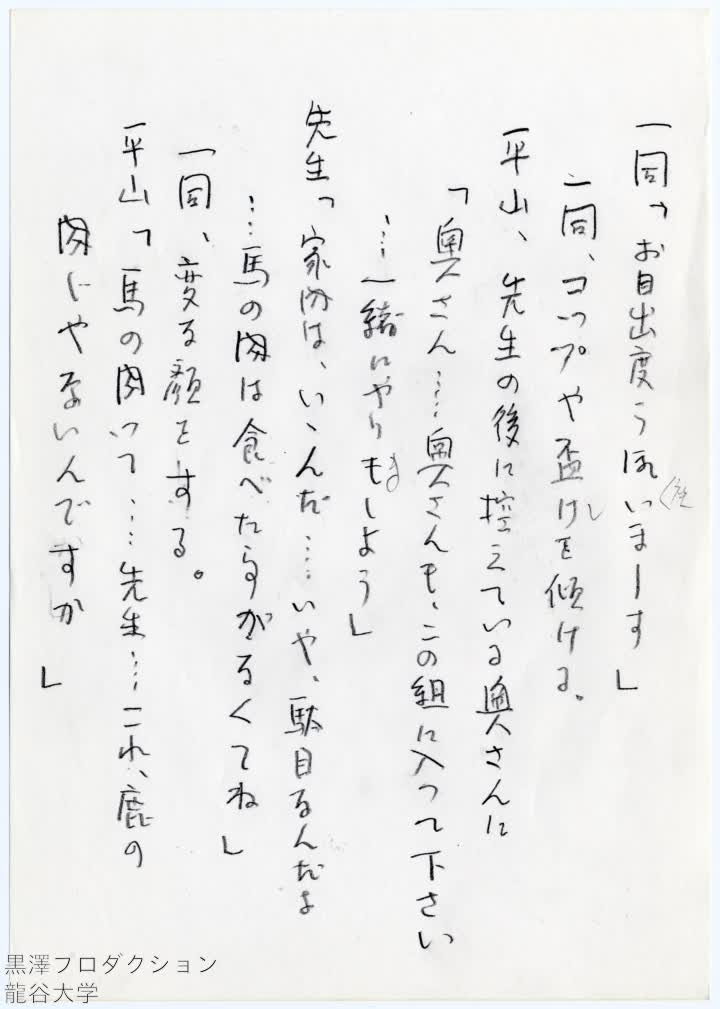 一同「お目出度うございまーす」
一同、コップや盃を傾ける。
平山、先生の後に控えている奥さんに
「奥さん……奥さんも、この組に入って下さい
……一緒にやりましよう」
先生「家内は、いいんだ……いや、駄目なんだよ
……馬の肉は食べたうがなくてね」
一同、変な顔をする。
平山「馬の肉って……先生……これ、鹿の
肉じゃないんですか」
黒澤プロダクション
龍谷大学